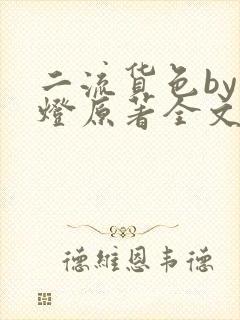 二流货色by
燈原著全文
德維恩韦德